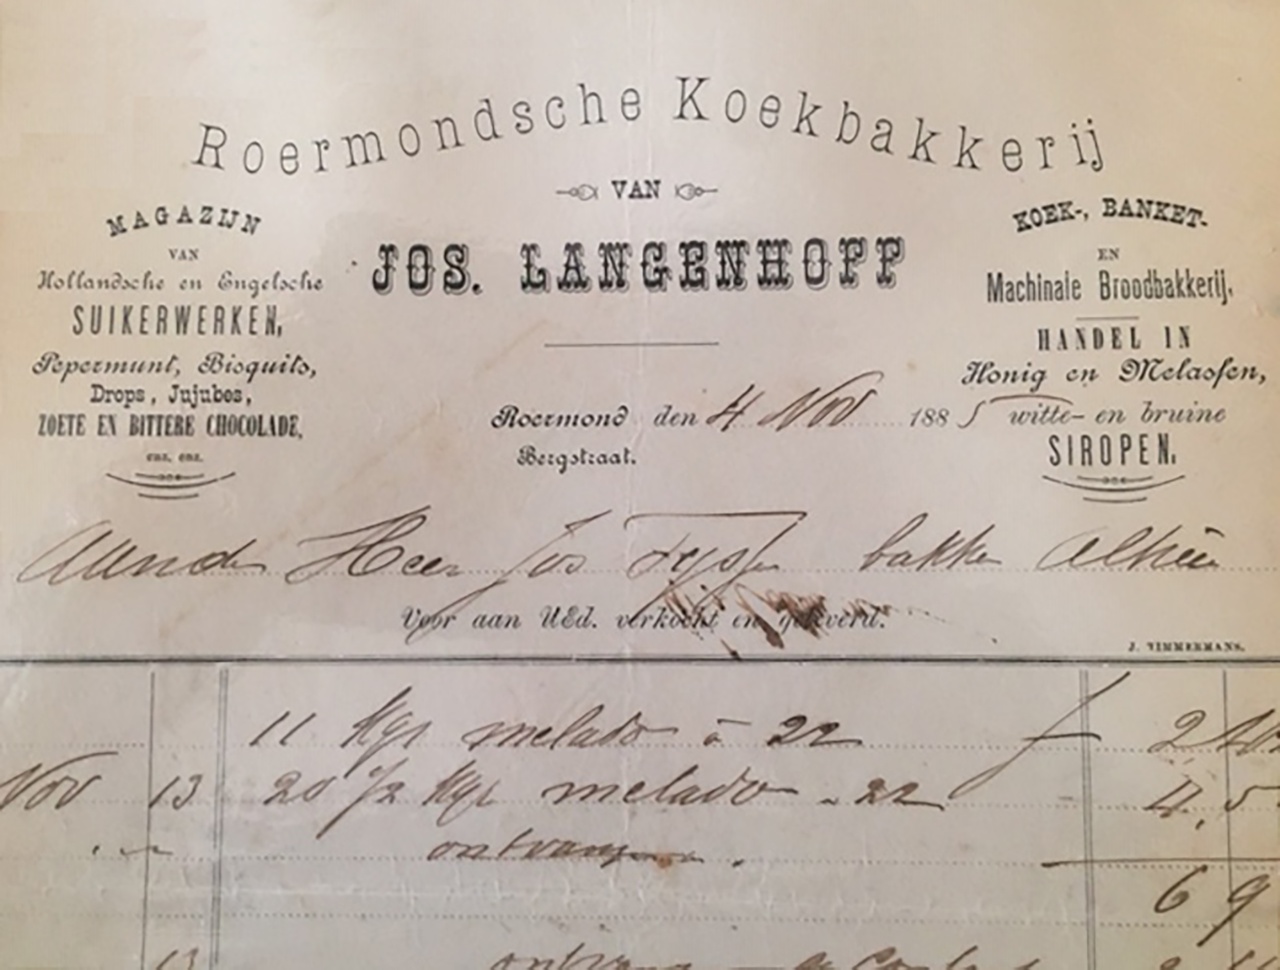 Roermondsche Koekbakkerij
VAN
JOS. LANGENHOFF
MAGAZIJN
VAN
Hollandsche en Engelsche
SUIKERWERKEN,
Pepermunt, Bisquits,
Drops, Jujubes,
ZOETE EN BITTERE CHOCOLADE,
enz. enz.
KOEK-, BANKET-
EN
Machinale Broodbakkerij.
HANDEL IN
Honig en Melassen,
witte- en bruine
SIROPEN.
Roermond den 4 Nov 1885
Bergstraat.
Heer Jos bakker
Voor aan UEd. verkocht en geleverd.
J. TIMMERMANS.
11 Kgr melado à 22 f 2
Nov 13 20 1/2 Kgr melado " 22 4,5
6 9
13